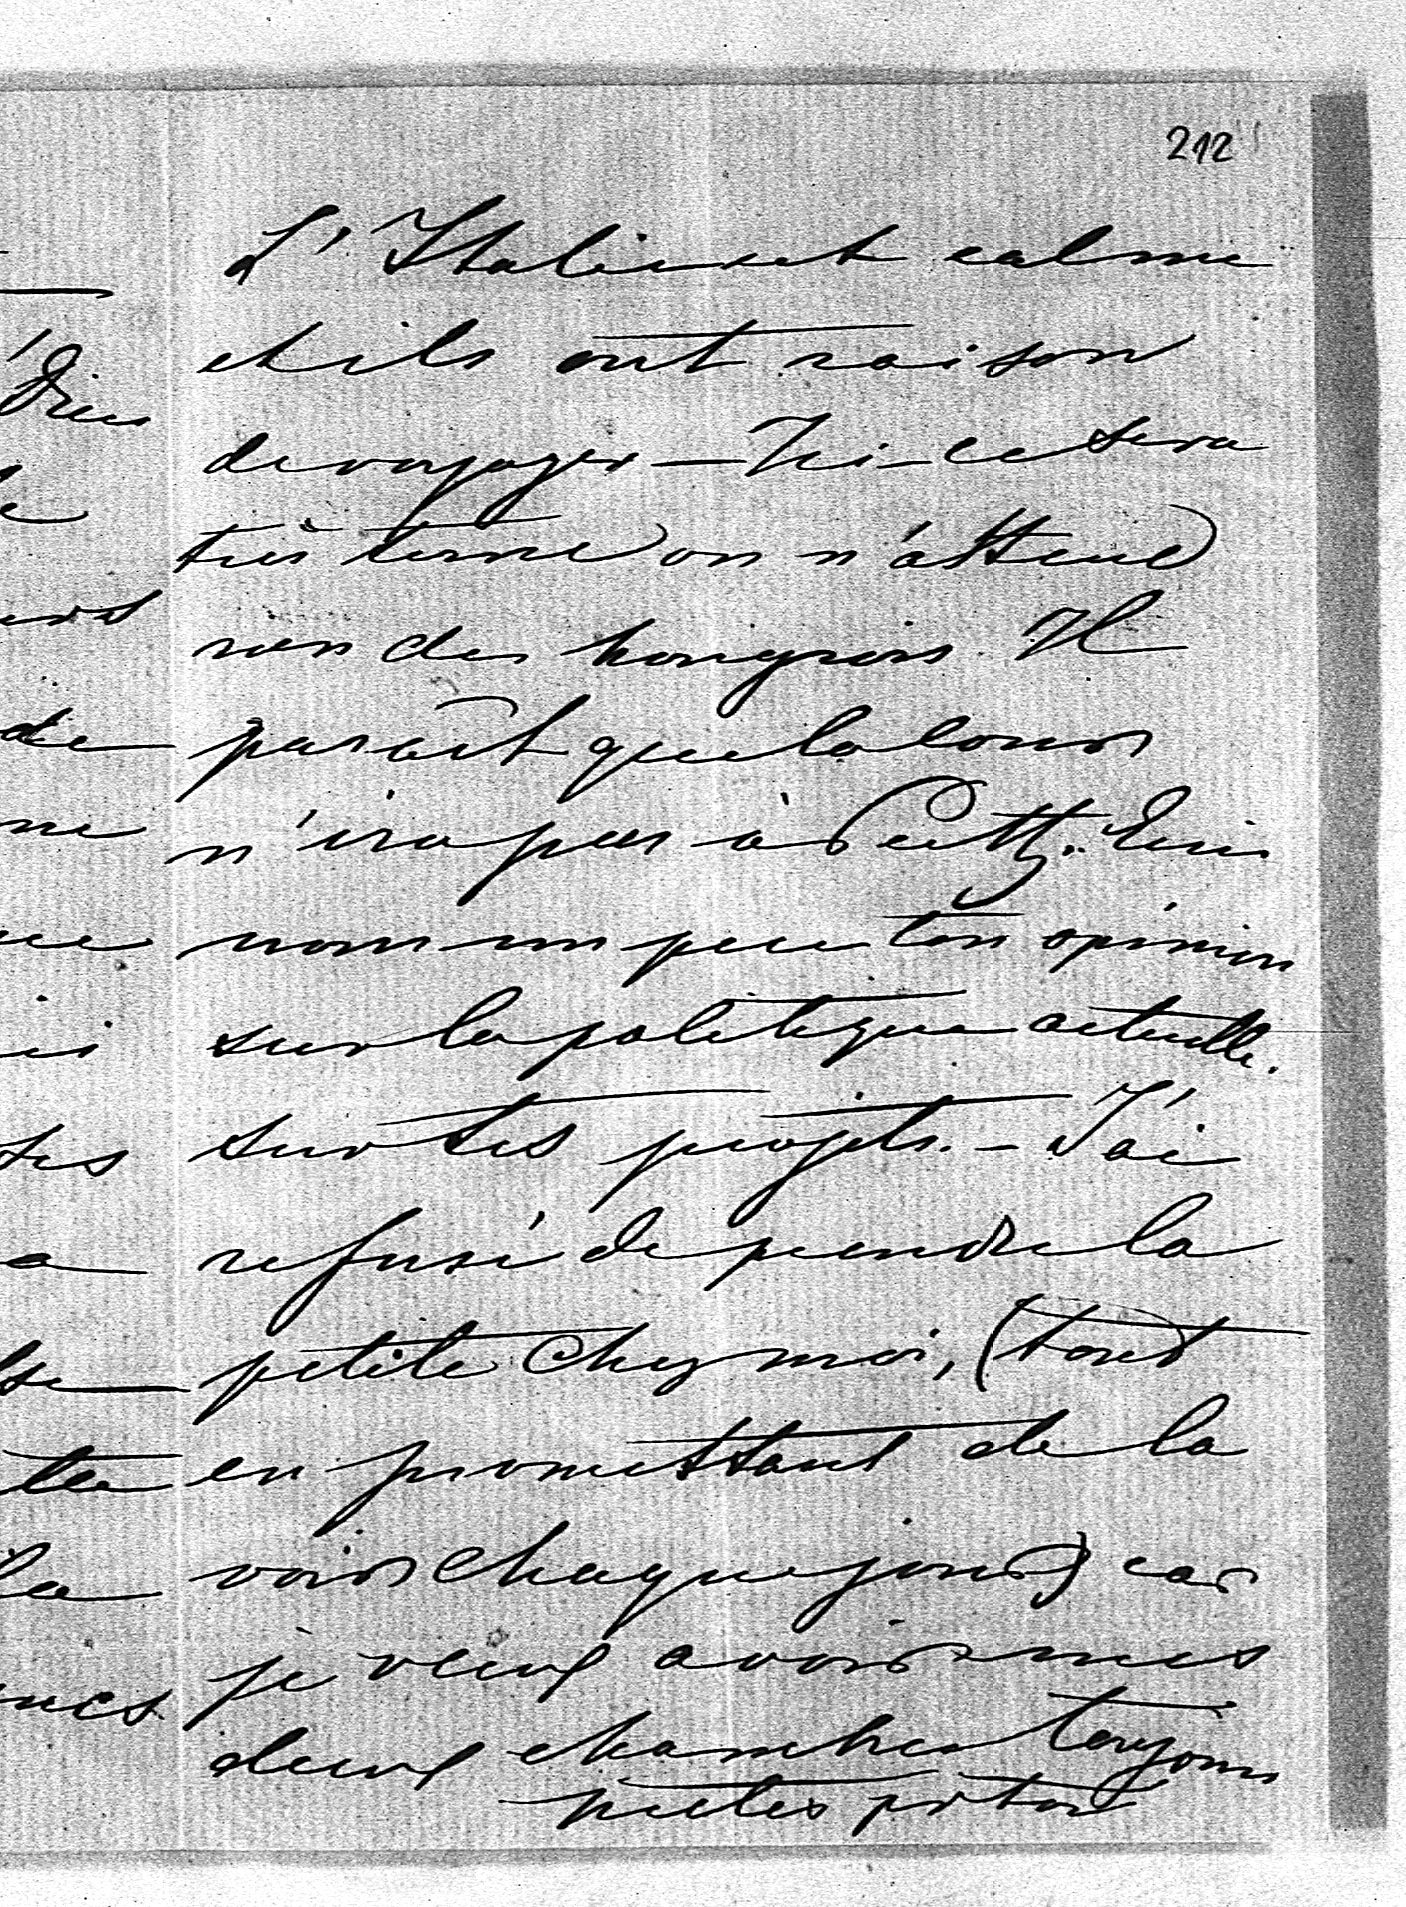 212
L'Italie est calme
et ils ont raison
de voyager — Ici — ce sera
très terne on n'attend
rien des hongrois Il
paraît que la cour
n'ira pas à Pesth. Ecris
nous un peu ton opinion
sur la politique actuelle.
sur tes projets. — J'ai
refusé de prendre la
petite chez moi, (tout
en promettant de la
voir chaque jour) car
je veux avoir mes
deux chambres toujours
prêtes pr toi